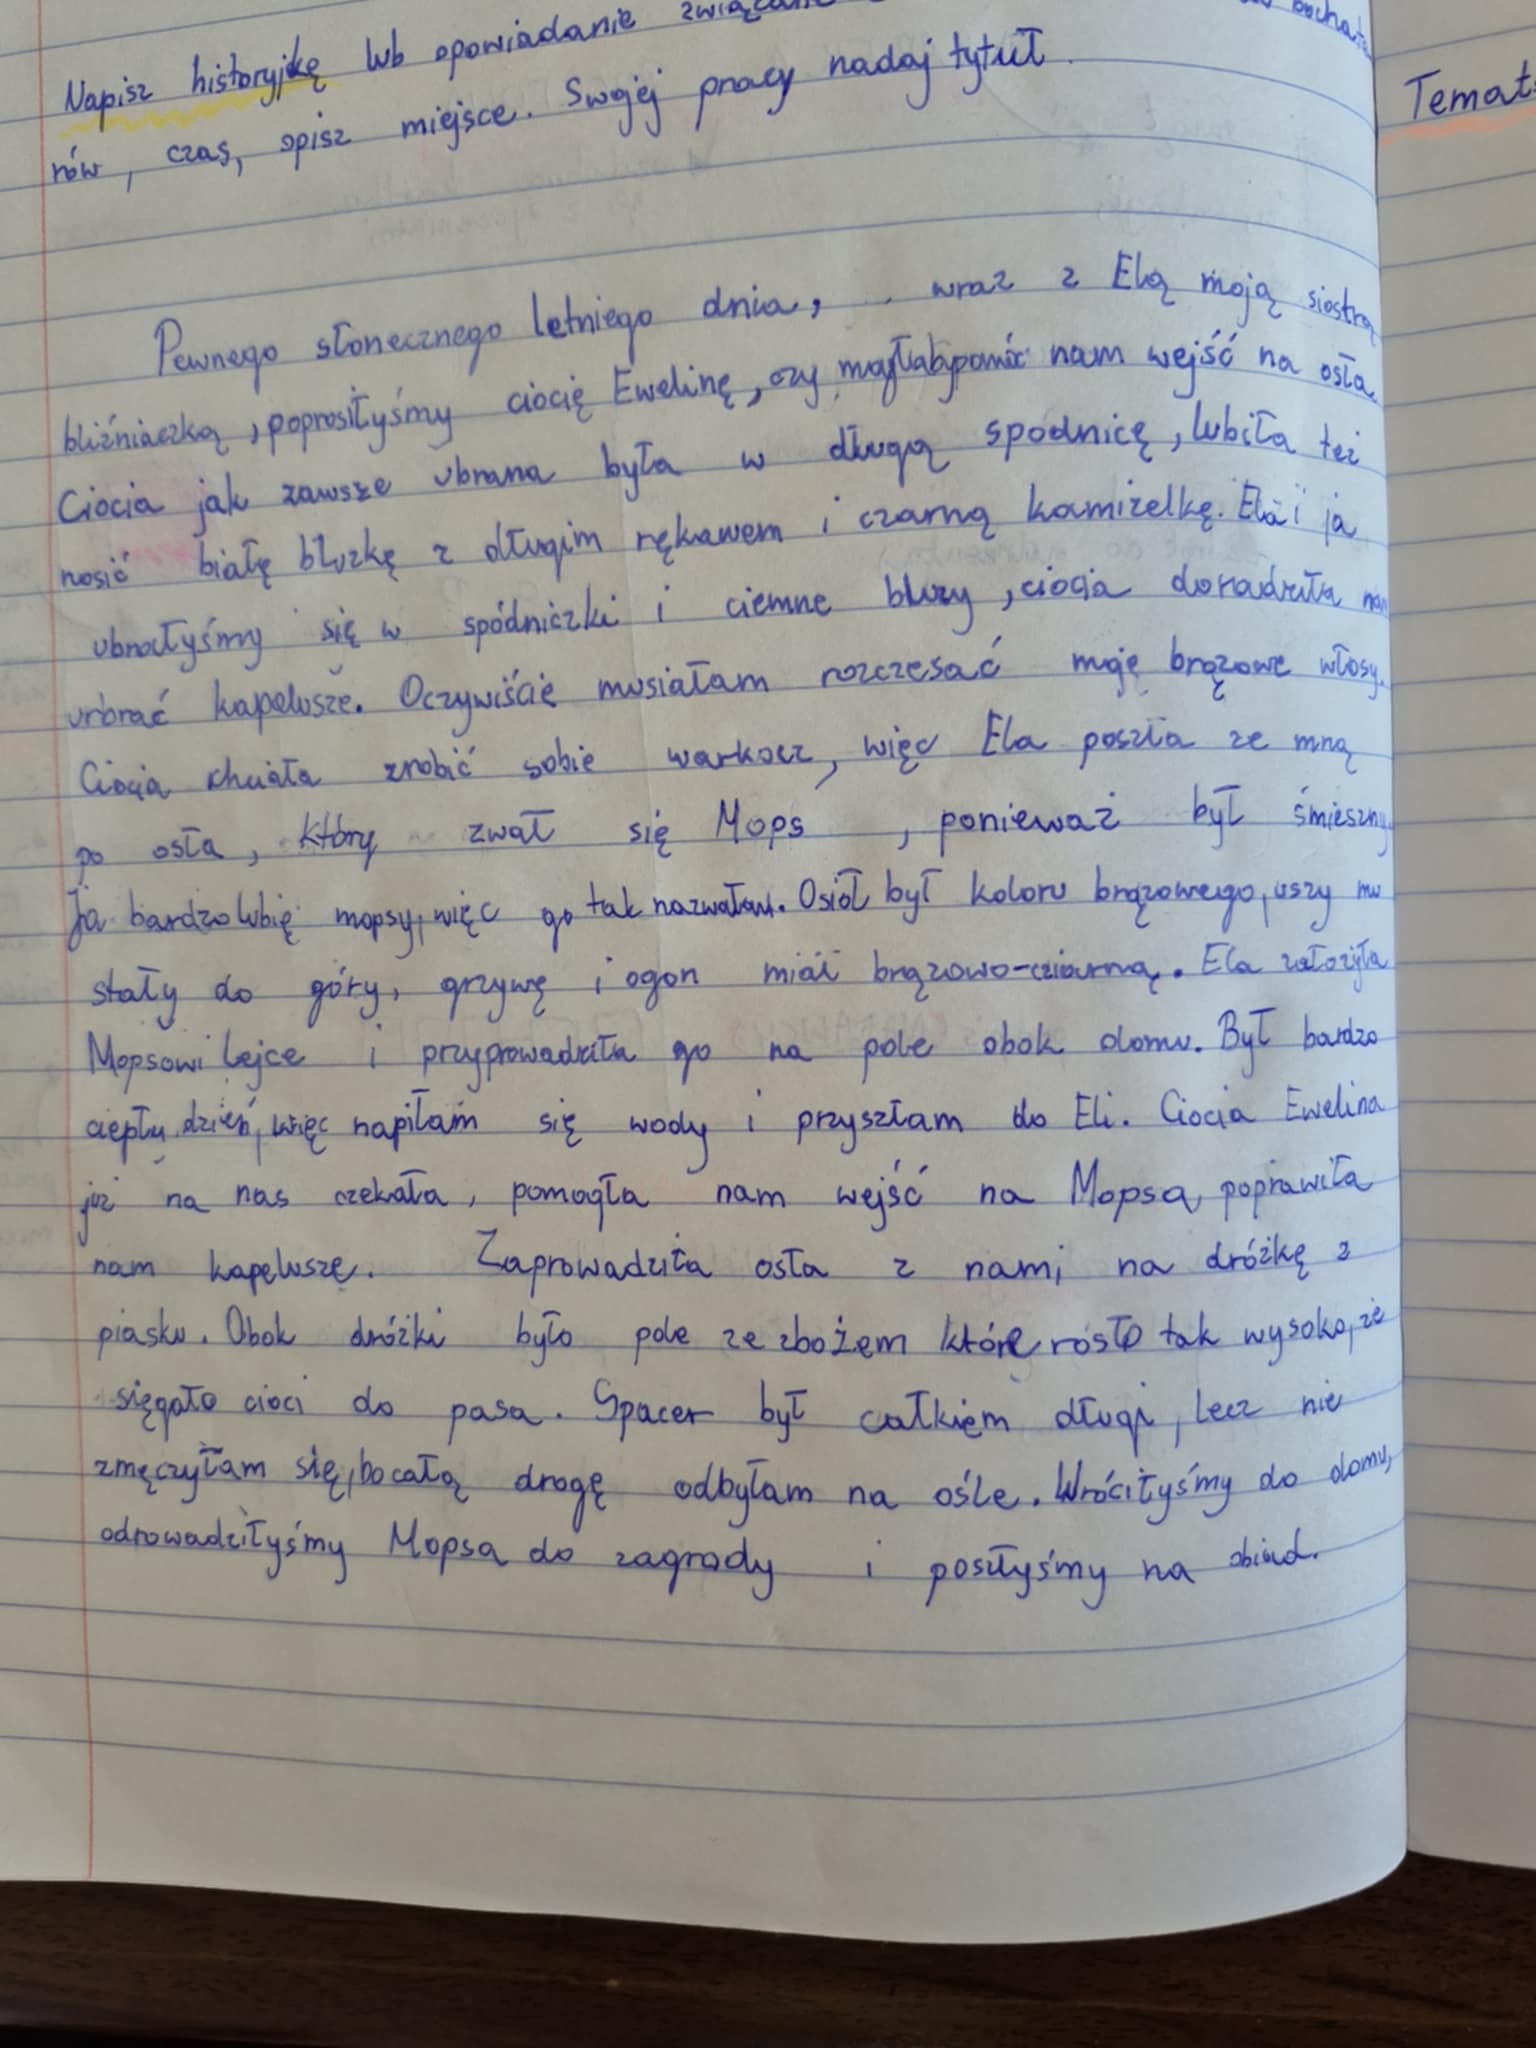 Napisz historyjkę lub opowiadanie
rów, czas, opisz miejsce. Swojej pracy nadaj tytuł.
Temat:
Pewnego słonecznego letniego dnia, wraz z Elą moją siostrą
bliźniaczką, poprosiłyśmy ciocię Ewelinę, czy mogłaby pomóc nam wejść na osła.
Ciocia jak zawsze ubrana była w długą spódnicę, lubiła też
nosić białę bluzkę z długim rękawem i czarną kamizelkę. Ela i ja
ubrałyśmy się w spódniczki i ciemne bluzy, ciocia doradziła nam
ubrać kapelusze. Oczywiście musiałam rozczesać moje brązowe włosy.
Ciocia chciała zrobić sobie warkocz, więc Ela poszła ze mną
po osła, który zwał się Mops, ponieważ był śmieszny.
Ja bardzo lubię mopsy, więc go tak nazwałam. Osioł był koloru brązowego, uszy mu
stały do góry, grzywę i ogon miał brązowo-czarną. Ela założyła
Mopsowi lejce i przyprowadziła go na pole obok domu. Był bardzo
ciepły dzień, więc napiłam się wody i przyszłam do Eli. Ciocia Ewelina
już na nas czekała, pomogła nam wejść na Mopsa, poprawiła
nam kapelusze. Zaprowadziła osła z nami na dróżkę z
piasku. Obok dróżki było pole ze zbożem które rosło tak wysoko, że
sięgało cioci do pasa. Spacer był całkiem długi, lecz nie
zmęczyłam się, bo całą drogę odbyłam na ośle. Wróciłyśmy do domu,
odrowadziłyśmy Mopsa do zagrody i poszłyśmy na obiad.